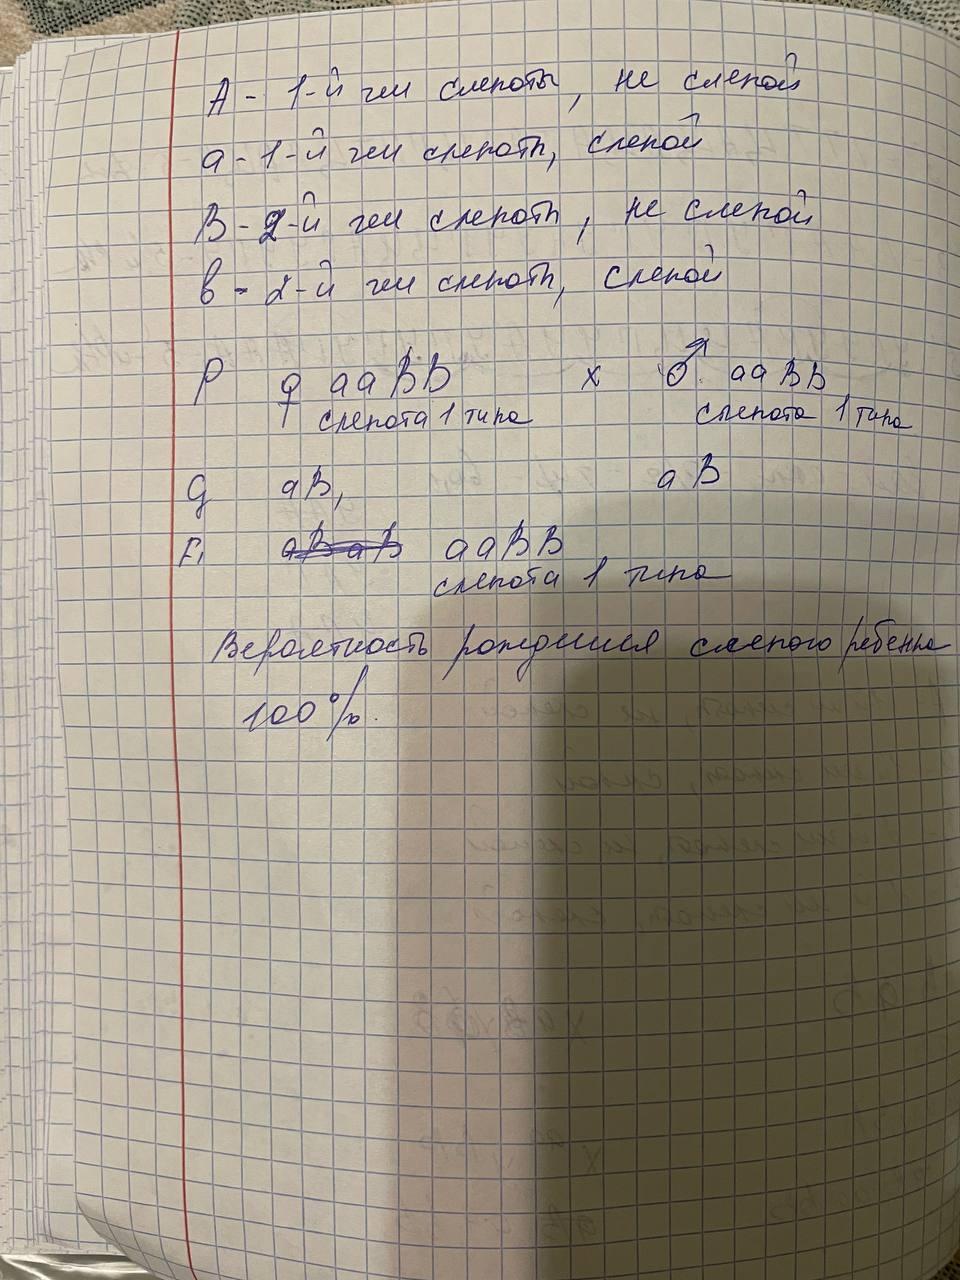 А - 1-й ген слепоты, не слепой
а - 1-й ген слепоты, слепой
В - 2-й ген слепоты, не слепой
в - 2-й ген слепоты, слепой
P ♀ ааВВ х ♂ ааВВ
слепота 1 типа слепота 1 типа
g аВ, аВ
F₁ ааВВ
слепота 1 типа
Вероятность рождения слепого ребенка
100%.